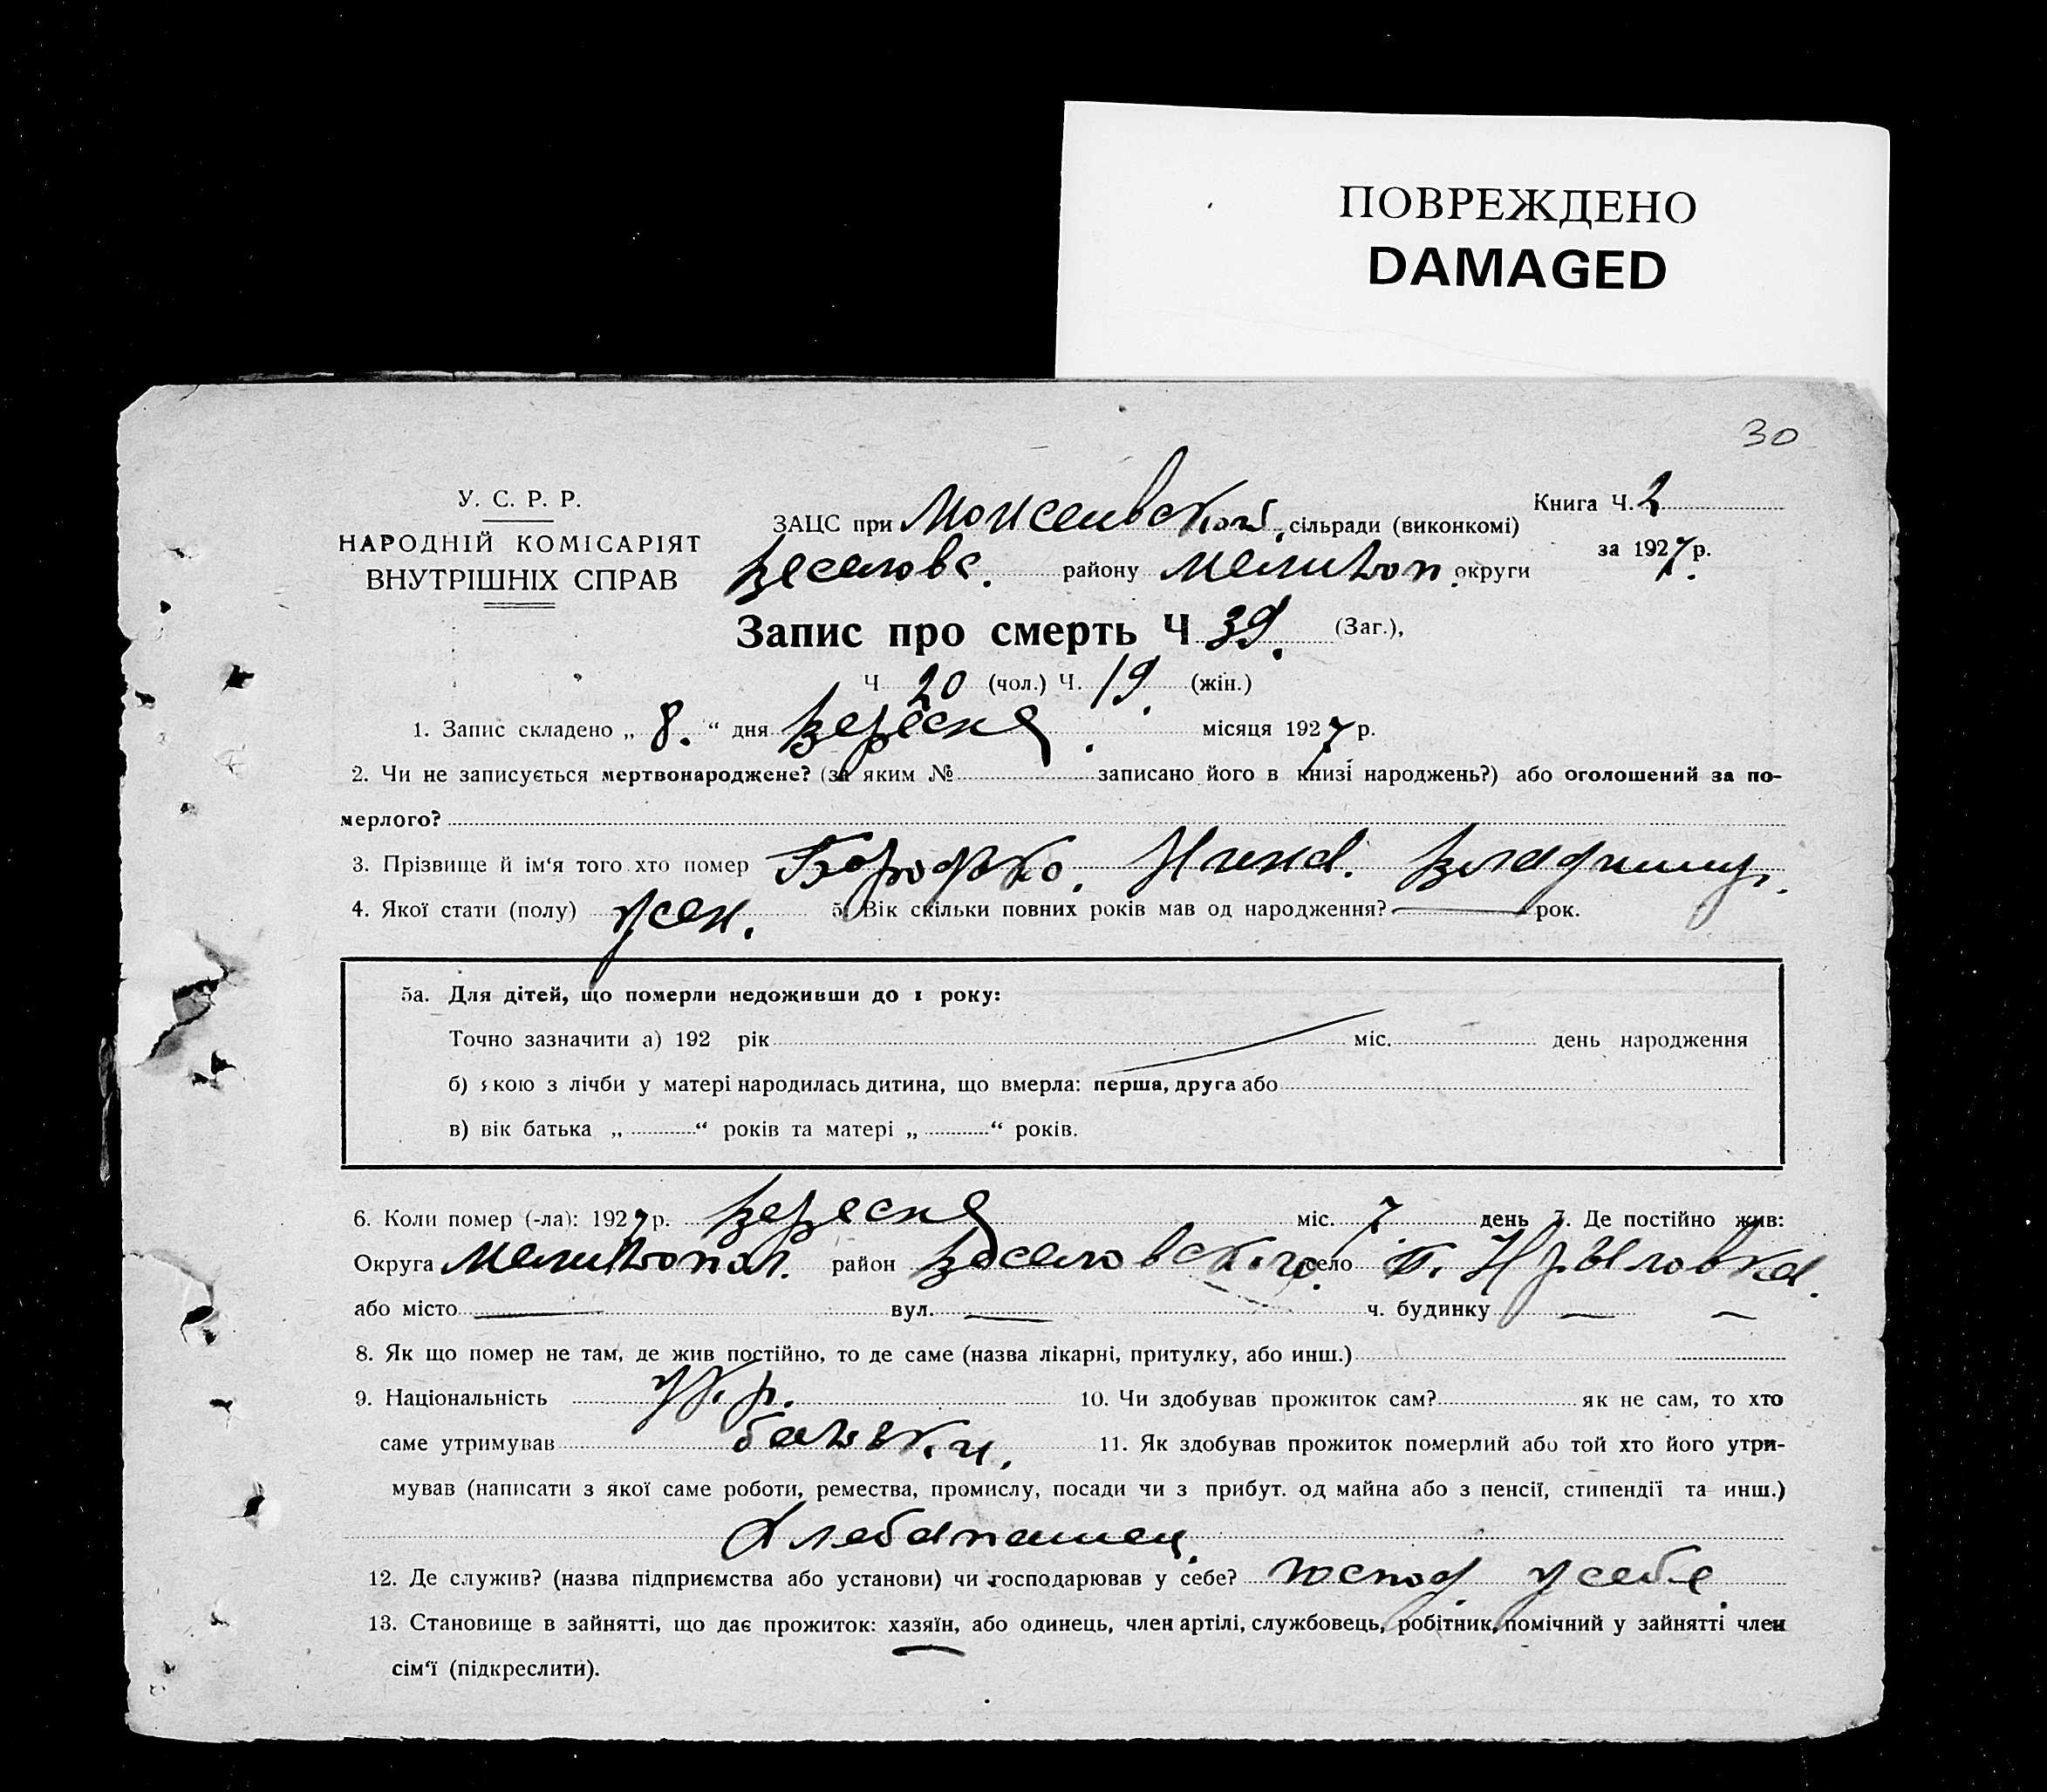 ПОВРЕЖДЕНО
DAMAGED
30
У. С. Р. Р.
НАРОДНІЙ КОМІСАРІЯТ
ВНУТРІШНІХ СПРАВ
ЗАЦС при Моисеивской сільради (виконкомі)
Книга Ч. 2
за 1927 р.
Веселовс. району Мелитоп. округи
Запис про смерть Ч 39. (Заг.),
Ч 20 (чол.) Ч. 19. (жін.)
1. Запис складено „ 8. “ дня вересня. місяця 1927 р.
2. Чи не записується мертвонароджене? (за яким № записано його в книзі народжень?) або оголошений за по-
мерлого?
3. Прізвище й ім'я того хто помер Нина. Владимир.
4. Якої стати (полу) жен. 5. Вік скільки повних років мав од народження? — рок.
5а. Для дітей, що померли недоживши до 1 року:
Точно зазначити а) 192 рік міс. день народження
б) якою з лічби у матері народилась дитина, що вмерла: перша, друга або
в) вік батька „ “ років та матері „ “ років.
6. Коли помер (-ла): 1927 р. вересня міс. 7 день 7. Де постійно жив:
Округа Мелитопол. район Веселовского село п. Крыловка.
або місто — вул. — ч. будинку — —
8. Як що помер не там, де жив постійно, то де саме (назва лікарні, притулку, або инш.)
9. Національність укр. 10. Чи здобував прожиток сам? як не сам, то хто
саме утримував батьки. 11. Як здобував прожиток померлий або той хто його утри-
мував (написати з якої саме роботи, ремества, промислу, посади чи з прибут. од майна або з пенсії, стипендії та инш.)
Хлебапашец.
12. Де служив? (назва підприємства або установи) чи господарював у себе? господ. у себе.
13. Становище в зайнятті, що дає прожиток: хазяїн, або одинець, член артілі, службовець, робітник, помічний у зайнятті член
сім'ї (підкреслити).